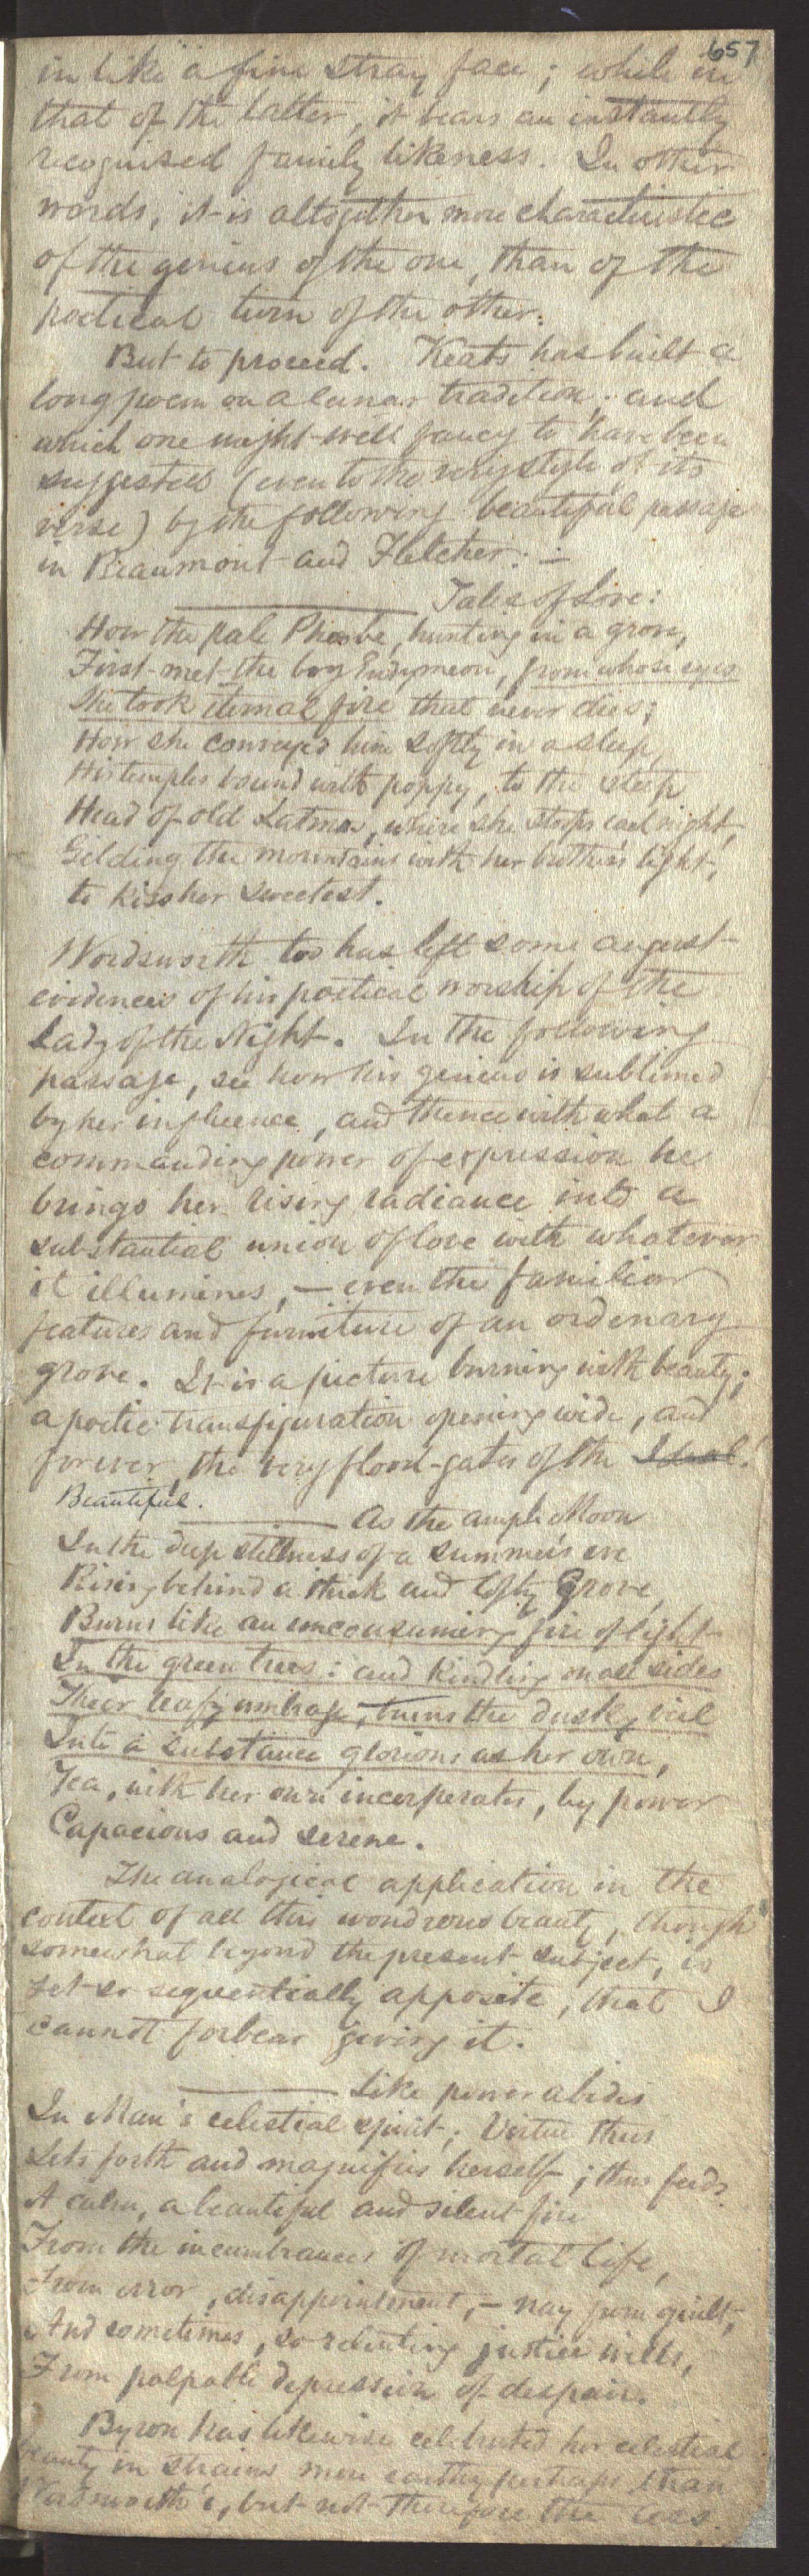 657
in like a fine stray face; while in
that of the latter, it bears an instantly
recognised family likeness. In other
words, it is altogether more characteristic
of the genius of the one, than of the
poetical turn of the other.
But to proceed. Keats has built a
long poem on a lunar tradition; and
which one might well fancy to have been
suggested (even to the very style of its
verse) by the following beautiful passage
in Beaumont and Fletcher: —
Tales of Love:
How the pale Phoebe, hunting in a grove,
First met the boy Endymeon, from whose eyes
She took eternal fire that never dies;
How she conveyed him softly in a sleep,
His temples bound with poppy, to the steep
Head of old Latmos, where she stoops each night,
Gilding the mountains with her brother's light,
to kiss her sweetest.
Wordsworth too has left some august
evidences of his poetical worship of the
Lady of the Night. In the following
passage, see how his genius is sublimed
by her influence, and thence with what a
commanding power of expression he
brings her rising radiance into a
substantial union of love with whatever
it illumines, — even the familiar
features and furniture of an ordenary
grove. It is a picture burning with beauty;
a poetic transfiguration opening wide, and
forever, the very flood-gates of the Ideal!
Beautiful.
As the ample Moon
In the deep stillness of a summer's eve
Rising behind a thick and lofty Grove,
Burns like an unconsuming fire of light
In the green trees: and kindling on all sides
Their leafy umbrage, turns the dusky veil
Into a substance glorious as her own,
Yea, with her own incorperates, by power
Capacious and serene.
The analogical application in the
context of all this wondrous beauty, though
somewhat beyond the present subject, is
yet so sequentially apposite, that I
cannot forbear giving it.
Like power abides
In Man's celestial spirit; Virtue thus
Sets forth and magnifies herself; thus feeds
A calm, a beautiful and silent fire
From the incumbrances of mortal life,
From error, disappointment, — nay from guilt;
And sometimes, so relenting justice wills,
From palpable depression of despair.
Byron has likewise celebrated her celestial
beauty in strains more earthy perhaps than
Wordsworth's, but not therefore the less